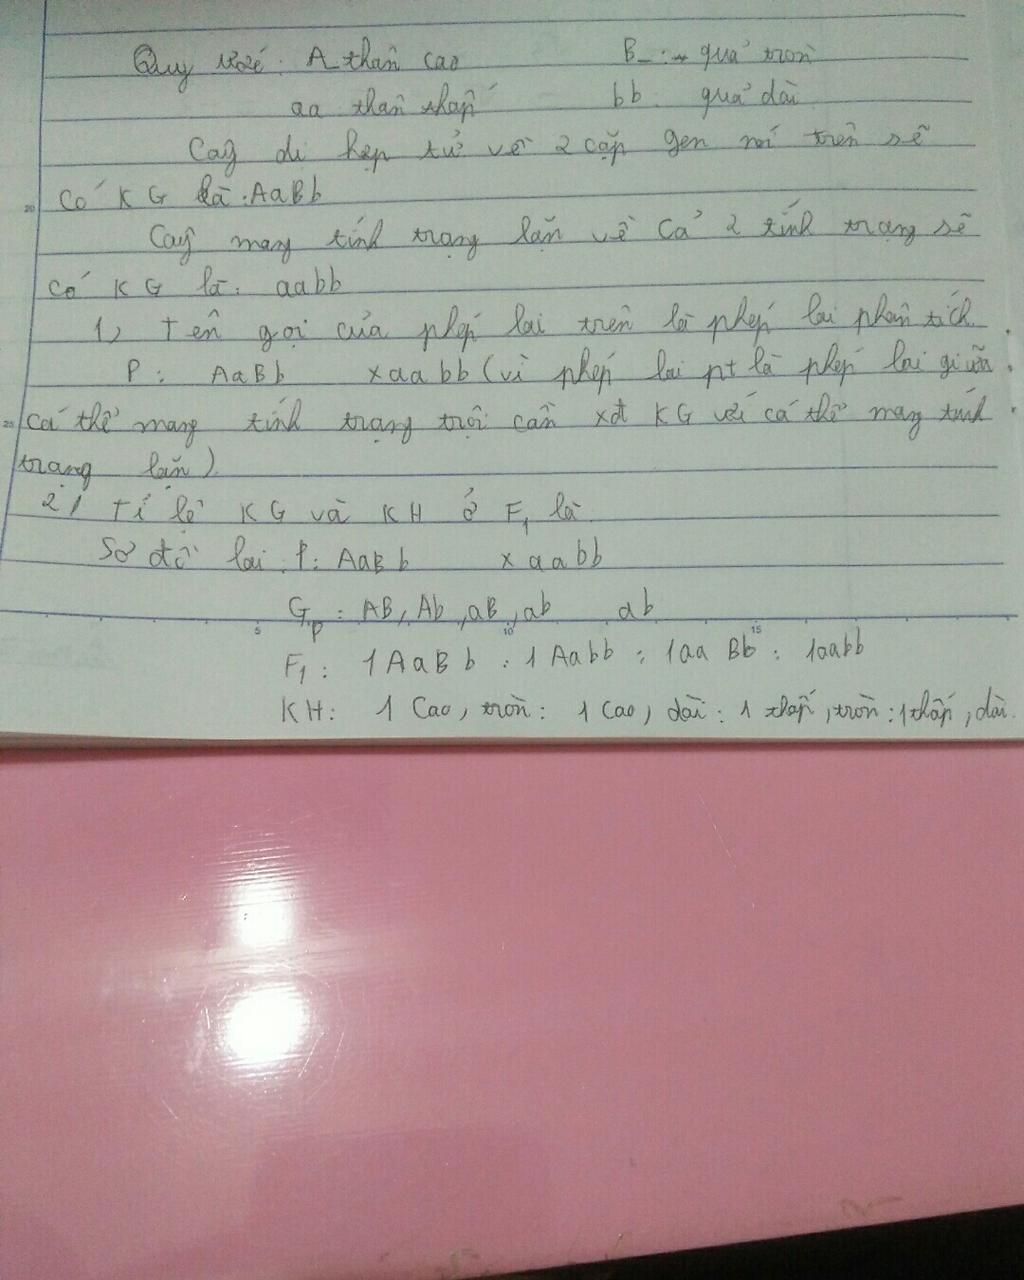 Quy ước: A_ thân cao B_: quả tròn
aa thân thấp bb: quả dài
Cây dị hợp tử về 2 cặp gen nói trên sẽ
20 có KG là: AaBb
Cây mang tính trạng lặn về cả 2 tính trạng sẽ
có KG là: aabb
1, Tên gọi của phép lai trên là phép lai phân tích
P: AaBb x aabb (vì phép lai pt là phép lai giữa
25 cá thể mang tính trạng trội cần xđ KG với cá thể mang tính
trạng lặn).
2, Tỉ lệ KG và KH ở F1 là
Sơ đồ lai: P: AaBb x aabb
Gp: AB, Ab, aB, ab ab
5 10 15
F1: 1AaBb : 1Aabb : 1aaBb : 1aabb
KH: 1 Cao, tròn : 1 Cao, dài : 1 thấp, tròn : 1 thấp, dài.